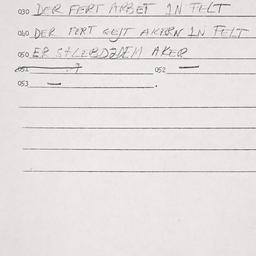 030 DER FERT ARBET IN FELT
040 DER FERT GEJT AKERN IN FELT
050 ER AKER
051 052 —
053 — .